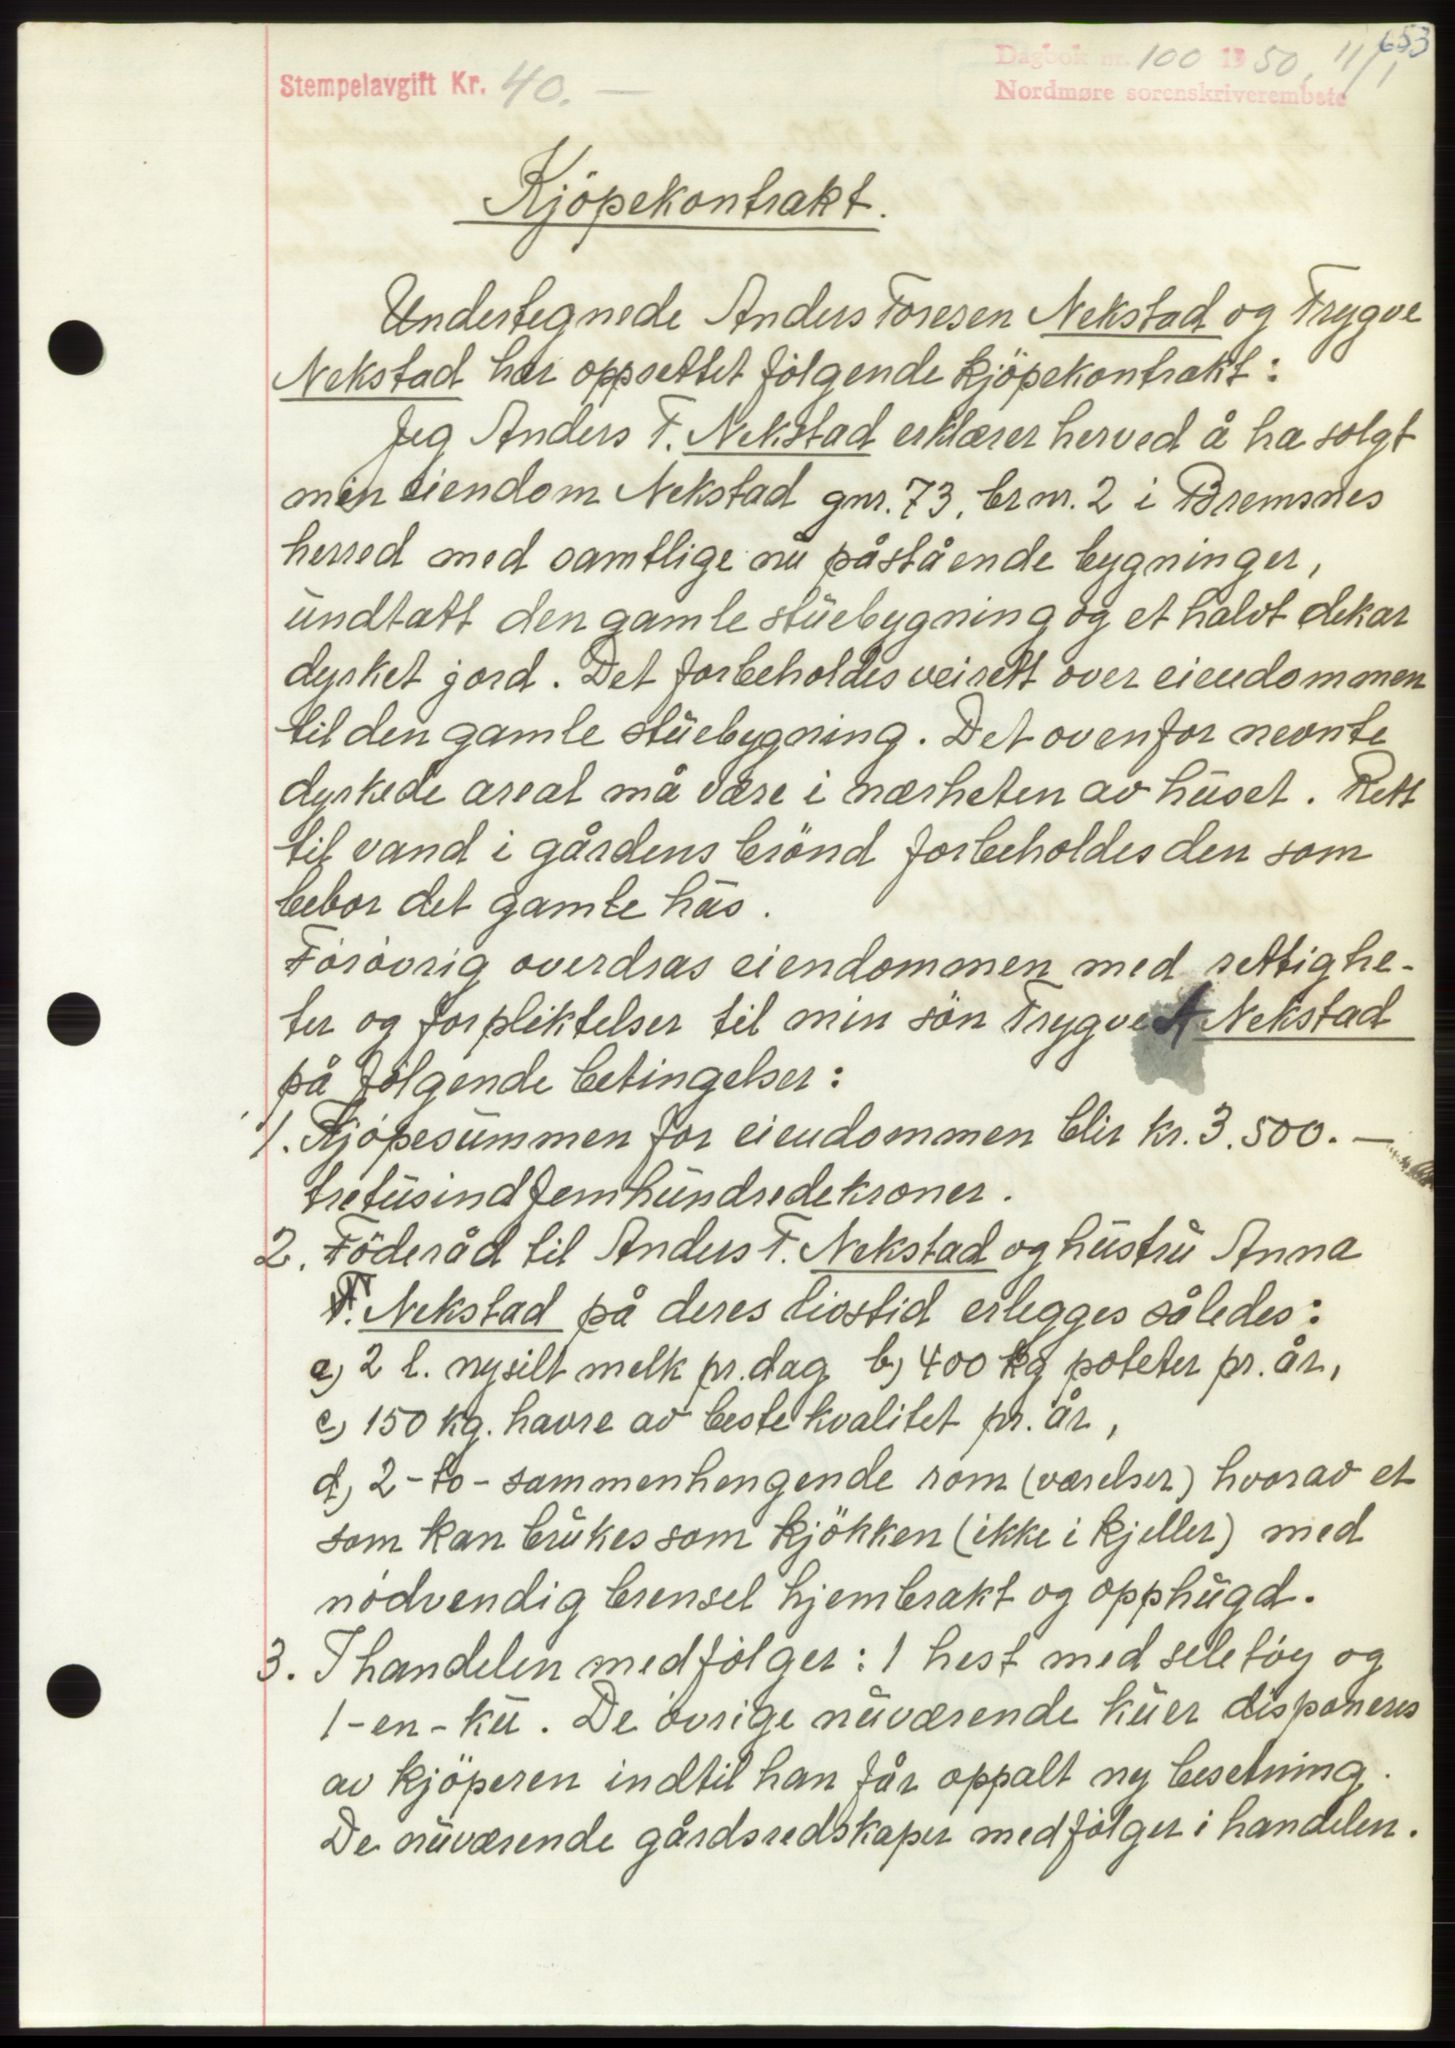 653
Dagbok nr. 100 1950, 11/1
Stempelavgift Kr. 40.—
Nordmøre sorenskriverembete
Kjöpekontrakt.
Undertegnede Anders Toresen Nekstad og Trygve
Nekstad har oppsettet følgende kjöpekontrakt:
Jeg Anders T. Nekstad erklærer herved å ha solgt
min eiendom Nekstad gnr. 73, brnr. 2 i Bremsnes
herred med samtlige nu påstående bygninger,
undtatt den gamle stuebygning og et halvt dekar
dyrket jord. Det forbeholdes veirett over eiendommen
til den gamle stuebygning. Det ovenfor nevnte
dyrkede areal må være i nærheten av huset. Rett
til vand i gårdens brönd forbeholdes den som
bebor det gamle hus.
Forøvrig overdras eiendommen med rettighe-
ter og forpliktelser til min sön Trygve A Nekstad
på følgende betingelser:
1. Kjøpesummen for eiendommen blir kr. 3.500.—
tretusindfemhundredekroner.
2. Föderåd til Anders T. Nekstad og hustru Anna
T. Nekstad på deres livstid erlegges således:
a) 2 l. nysilt melk pr. dag b) 400 kg poteter pr. år,
c) 150 kg. havre av beste kvalitet pr. år,
d) 2-to- sammenhengende rom (værelser) hvorav et
som kan brukes som kjökken (ikke i kjeller) med
nödvendig brensel hjembrakt og opphugd.
3. I handelen medfølger: 1 hest med seletøy og
1-en-ku. De øvrige nuværende kuer disponeres
av kjöperen indtil han får oppalt ny besetning.
De nuværende gårdsredskaper medfølger i handelen.